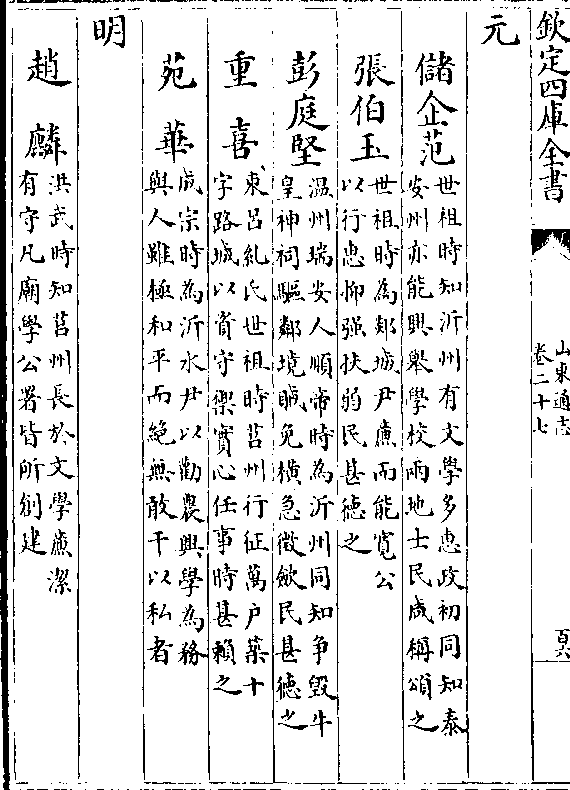 欽定四庫全書
山東通志
卷二十七
百六
元
儲企范
世祖時知沂州有文學多惠政初同知泰
安州亦能興舉學校兩地士民咸稱頌之
張伯玉
世祖時為郯城尹廉而能寛公
以行恵抑强扶弱民甚徳之
彭庭堅
温州瑞安人順帝時為沂州同知爭毁牛
皇神祠驅鄰境賊免横急徵歛民甚徳之
重喜
東吕糺氏世祖時莒州行征萬户築十
字路城以資守禦實心任事時甚賴之
苑華
成宗時為沂水尹以勸農興學為務
與人雖極和平而絶無敢干以私者
明
趙麟
洪武時知莒州長於文學廉潔
有守凡廟學公署皆所創建